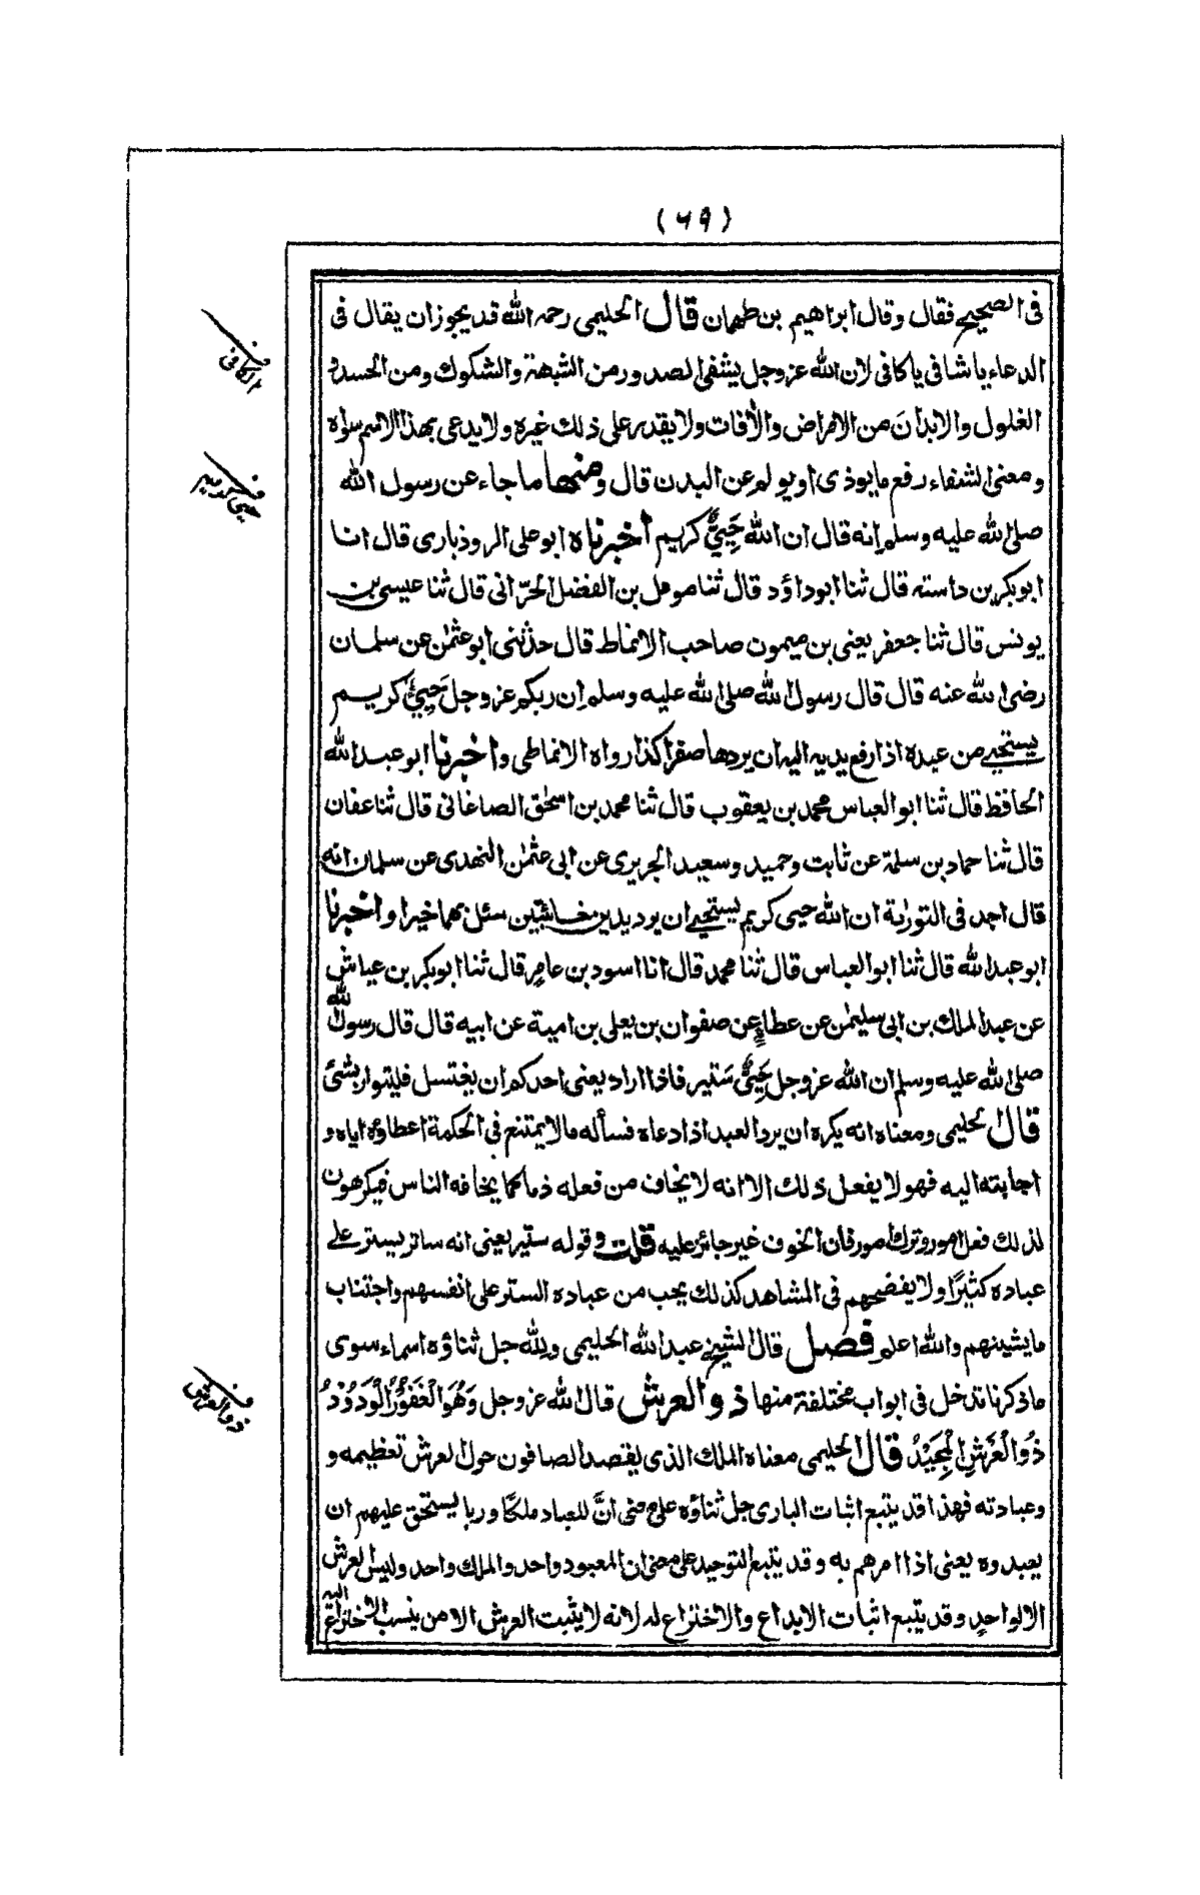 (٦٩)
فى الصحيح فقال وقال ابراهيم بن طهمان قال الحليمى رحمه الله قد يجوز ان يقال فى
الدعاء يا شافى يا كافى لان الله عز وجل يشفى الصدور من الشبهة والشكوك ومن الحسد و
الغلول والابدان من الامراض والآفات ولا يقدر على ذلك غيره ولا يدعى بهذا الاسم سواه
ومعنى الشفاء رفع ما يوذى او يولم عن البدن قال ومنها ما جاء عن رسول الله
صلى الله عليه وسلم انه قال ان الله حَيِىٌّ كريم أخبرناه ابو على الروذبارى قال انا
ابو بكر بن داسته قال ثنا ابو داؤد قال ثنا مومل بن الفضل الحرّانى قال ثنا عيسى بن
يونس قال ثنا جعفر يعنى بن ميمون صاحب الانماط قال حدثنى ابو عثمٰن عن سلمان
رضى الله عنه قال قال رسول الله صلى الله عليه وسلم ان ربكم عز وجل حَيِىٌّ كريم
يستحيى من عبده اذا رفع يديه اليه ان يردها صفرا كذا رواه الانماطى واخبرنا ابو عبد الله
الحافظ قال ثنا ابو العباس محمد بن يعقوب قال ثنا محمد بن اسحٰق الصاغانى قال ثنا عفان
قال ثنا حماد بن سلمة عن ثابت وحميد وسعيد الجريرى عن ابى عثمٰن النهدى عن سلمان انه
قال اجد فى التورٰىة ان الله حيى كريم يستحيى ان يرد يدين خائبتين سئل بهما خيرا واخبرنا
ابو عبد الله قال ثنا ابو العباس قال ثنا محمد قال انا اسود بن عامر قال ثنا ابو بكر بن عياش
عن عبد الملك بن ابى سليمٰن عن عطاءٍ عن صفوان بن يعلى بن امية عن ابيه قال قال رسول الله
صلى الله عليه وسلم ان الله عز وجل حَيِىٌّ سَتير فاذا اراد يعنى احدكم ان يغتسل فليتوار بشئ
قال الحليمى ومعناه انه يكره ان يرد العبد اذا دعاه فسأله مالا يمتنع فى الحكمة اعطاؤه اياه و
اجابته اليه فهو لا يفعل ذلك الا انه لا يخاف من فعله ذما كما يخافه الناس فيكرهون
لذلك فعل امور وترك امور فان الخوف غير جائز عليه قلت وقوله ستير يعنى انه ساتر يستر على
عباده كثيرًا ولا يفضحهم فى المشاهد كذلك يحب من عباده الستر على انفسهم واجتناب
ما يشينهم والله اعلم فصل قال الشيخ عبد الله الحليمى ولله جل ثناؤه اسماء سوى
ما ذكرنا تدخل فى ابواب مختلفة منها ذو العرش قال الله عز وجل وَهُوَ الْغَفُوْرُ الْوَدُوْدُ
ذُو الْعَرْشِ الْمَجِيْدُ قال الحليمى معناه الملك الذى يقصد الصافون حول العرش تعظيمه و
وعبادته فهذا قد يتبع اثبات البارى جل ثناؤه على معنى انَّ للعباد ملكًا وربا يستحق عليهم ان
يعبدوه يعنى اذا امرهم به وقد يتبع التوحيد على معنى ان المعبود واحد والملك واحد وليس العرش
الا لواحدٍ وقد يتبع اثبات الابداع والاختراع له لانه لا يثبت العرش الا من ينسب الاختراع اليه
الكافى
حيى كريم
ذو العرش